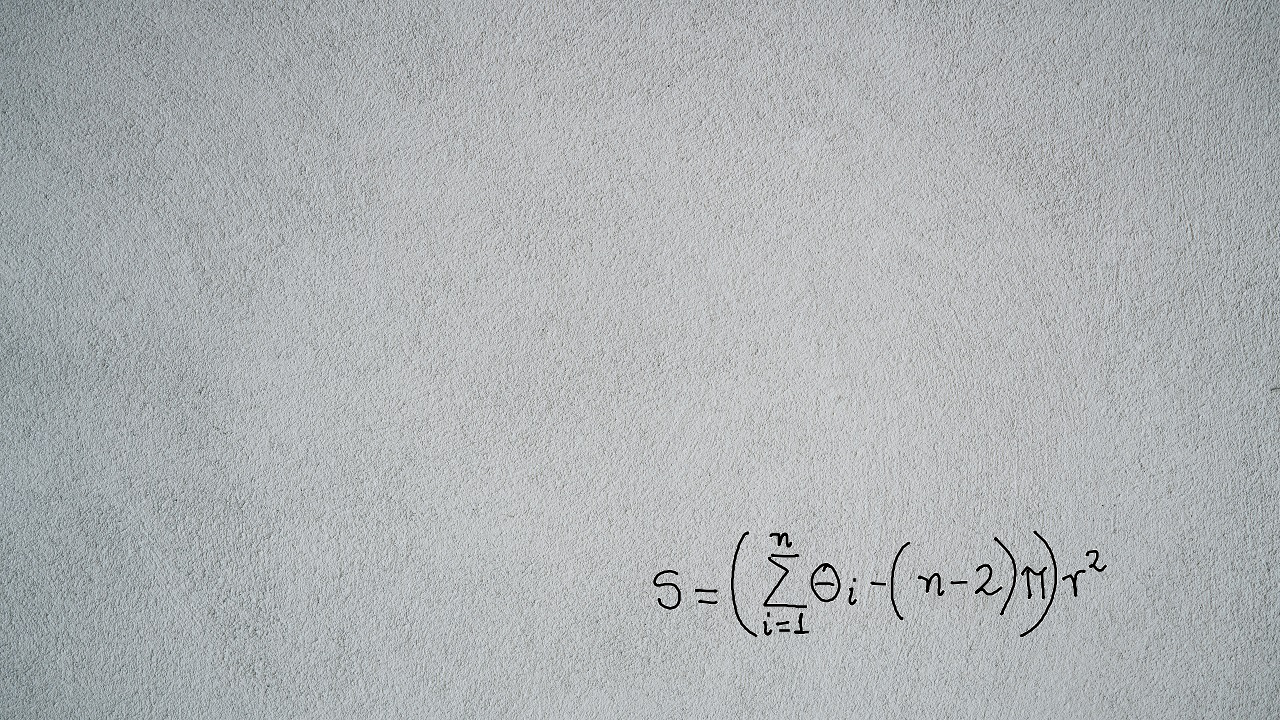 S = ( \sum_{i=1}^{n} \Theta_i - ( n - 2 ) \pi ) r^2